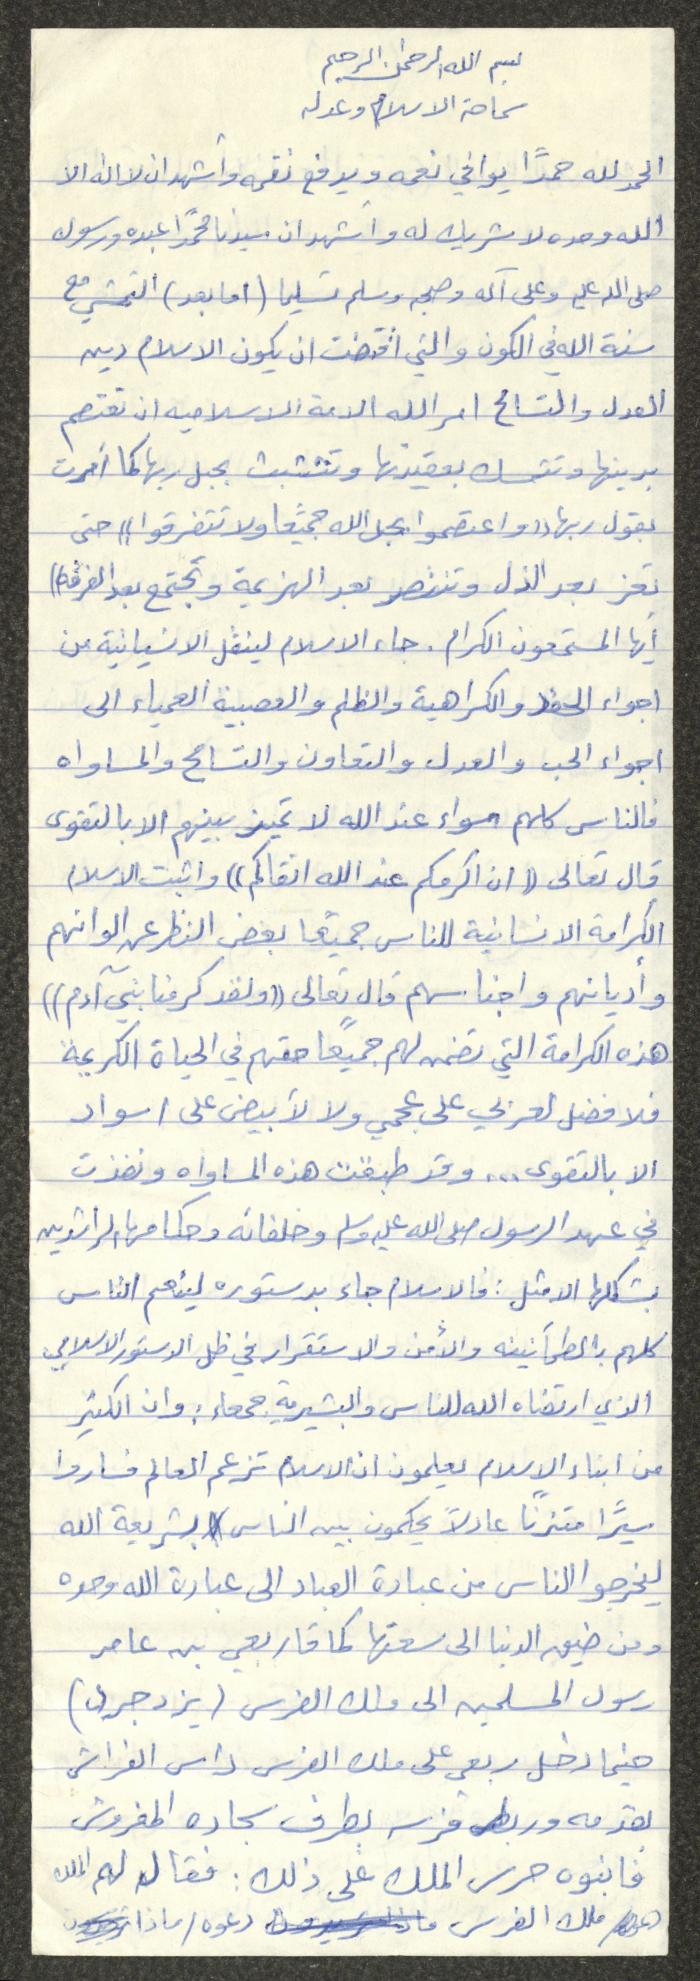 بسم الله الرحمن الرحيم
سماحة الاسلام وعدله
الحمد لله حمدًا يوافي نعمه ويدفع نقمه وأشهد ان لا اله الا
الله وحده لا شريك له وأشهد ان سيدنا محمَّدا عبده ورسوله
صلى الله عليه وعلى آله وصحبه وسلم تسليما (اما بعد) التمشي مع
سنة الله في الكون والتي اقتضت ان يكون الاسلام دين
العدل والتسامح امر الله الامة الاسلاميه ان تعتصم
بدينها وتتمسك بعقيدتها وتتشبث بحبل ربها كما أمرت
بقول ربها ((واعتصموا بحبل الله جميعًا ولا تتفرقوا)) حتى
تعز بعد الذل وتنتصر بعد الهزيمة وتجتمع بعد الفرقة))
أيها المستمعون الكرام . جاء الاسلام لينقل الانسانية من
اجواء الحقد والكراهية والظلم والعصبية العمياء الى
اجواء الحب والعدل والتعاون والتسامح والمساواه
فالناس كلهم سواء عند الله لا تميز بينهم الا بالتقوى
قال تعالى ((ان اكرمكم عند الله اتقاكم)) واثبت الاسلام
الكرامة الانسانية للناس جميعًا بغض النظر عن الوانهم
وأديانهم واجناسهم قال تعالى ((ولقد كرمنا بني آدم))
هذه الكرامة التي تضمن لهم جميعًا حقهم في الحياة الكريمة
فلا فضل لعربي على عجمي ولا لأبيض على اسواد
الا بالتقوى ... وقد طبقت هذه المساواه ونفذت
في عهد الرسول صلى الله عليه وسلم وخلفائه وحكامها الراشدين
بشكلها الامثل : فالاسلام جاء بدستوره لينعم الناس
كلهم بالطمأنينه والأمن والاستقرار في ظل الدستور الاسلامي
الذي ارتضاه الله للناس والبشرية جمعاء : وان الكثير
من ابناء الاسلام يعلمون ان الاسلام تزعم العالم فساروا
سيرًا متزنًا عادلاً يحكمون بين الناس بشريعة الله
ليخرجوا الناس من عبادة العباد الى عبادة الله وحده
ومن ضيق الدنيا الى سعتها كما قار ربعي بن عامر
رسول المسلمين الى ملك الفرس (يزدجرد)
حينما دخل ربعي على ملك الفرس داس الفراش
بقدمه وربط فرسه بطرف سجاده المفروش
فانبوه حرس الملك على ذلك : فقال لهم الملك
ملك الفرس دعوه / ماذا